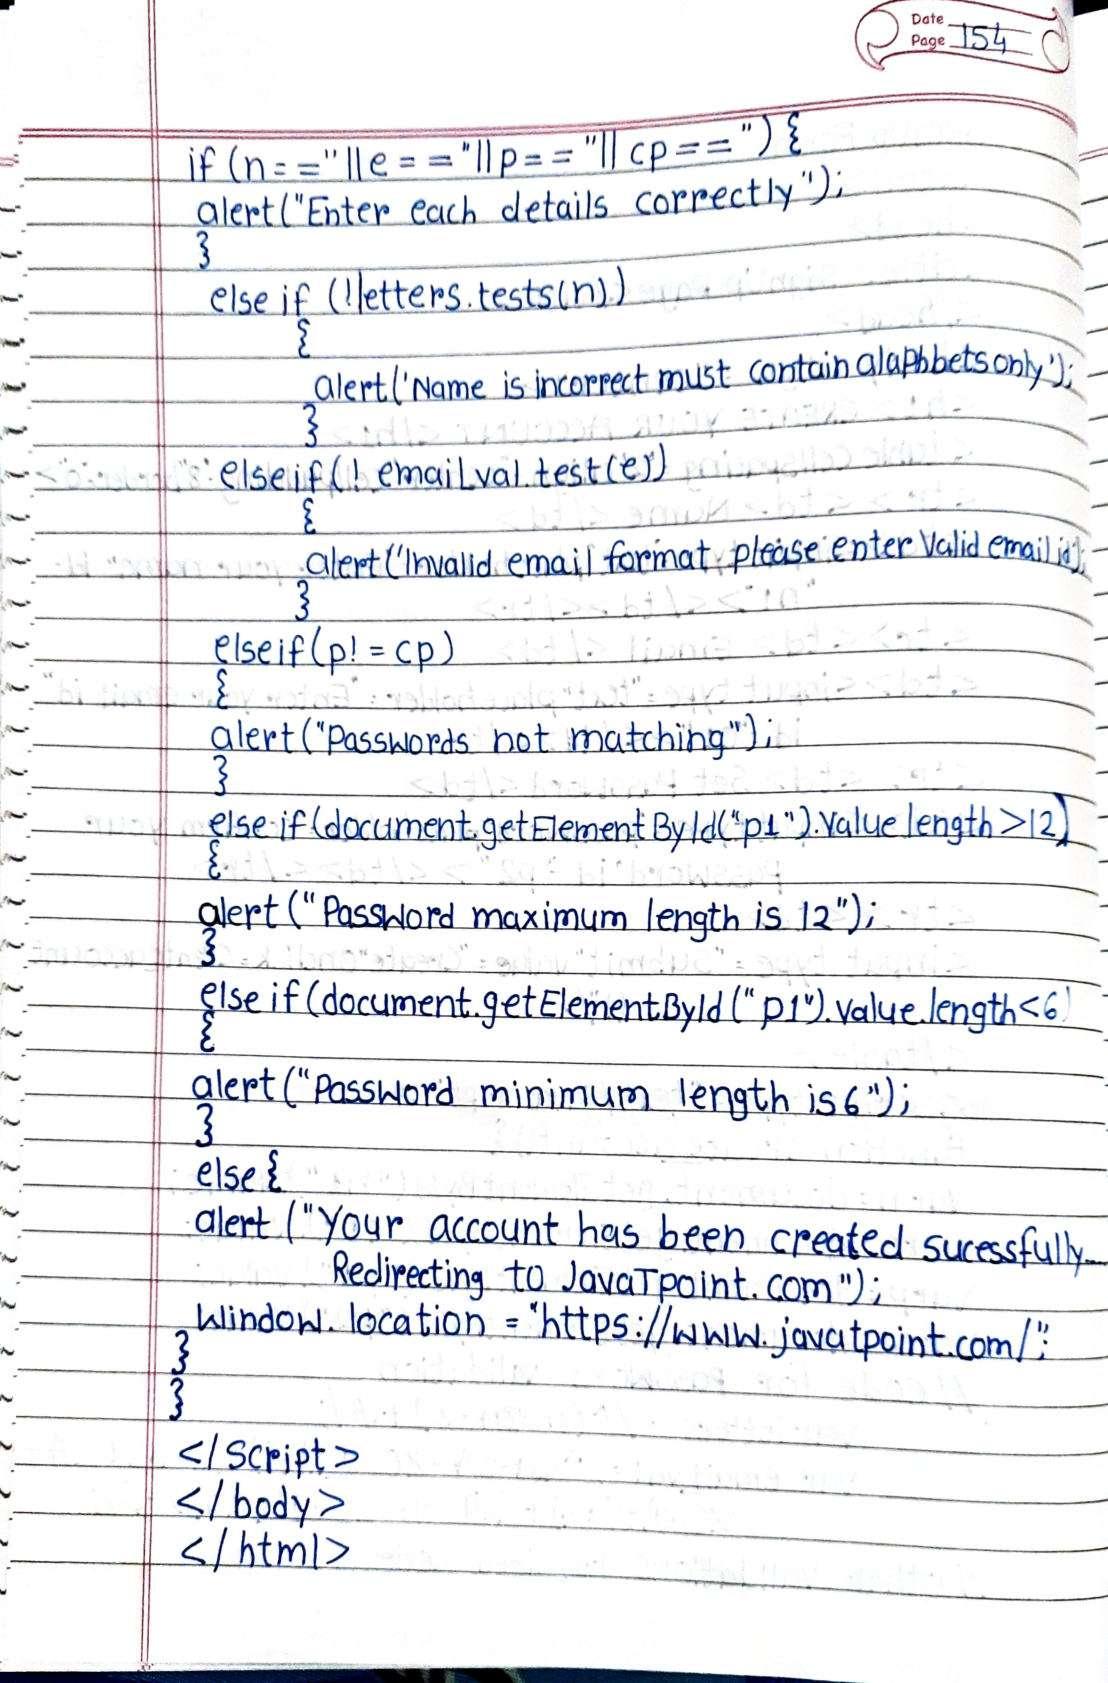 Date
Page 154
if (n=="||e=="||p=="||cp==") {
alert("Enter each details correctly");
}
else if (!letters.tests(n))
{
alert('Name is incorrect must contain alaphbets only');
}
else if (! email_val.test(e))
{
alert('Invalid email format please enter Valid email id);
}
else if (p! = cp)
{
alert("Passwords not matching");
}
else if (document.getElementById("p1").value length >12)
{
alert ("Password maximum length is 12");
}
else if (document.getElementById ("p1").value.length<6)
{
alert ("Password minimum length is 6");
}
else {
alert ("Your account has been created sucessfully...
Redirecting to JavaTpoint.com");
Window. location = "https://www.javatpoint.com/";
}
}
</script>
</body>
</html>